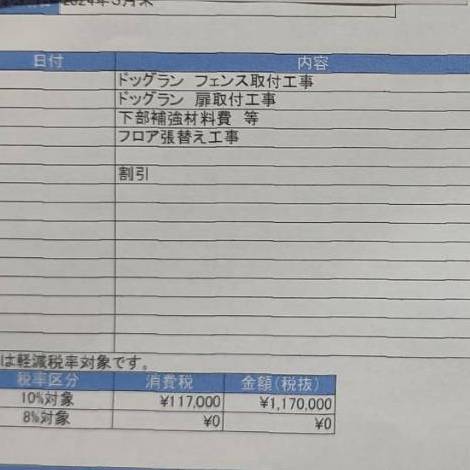 2024年3月末
日付 内容
ドッグラン フェンス取付工事
ドッグラン 扉取付工事
下部補強材料費 等
フロア張替え工事
割引
は軽減税率対象です。
税率区分 消費税 金額(税抜)
10%対象 ¥117,000 ¥1,170,000
8%対象 ¥0 ¥0